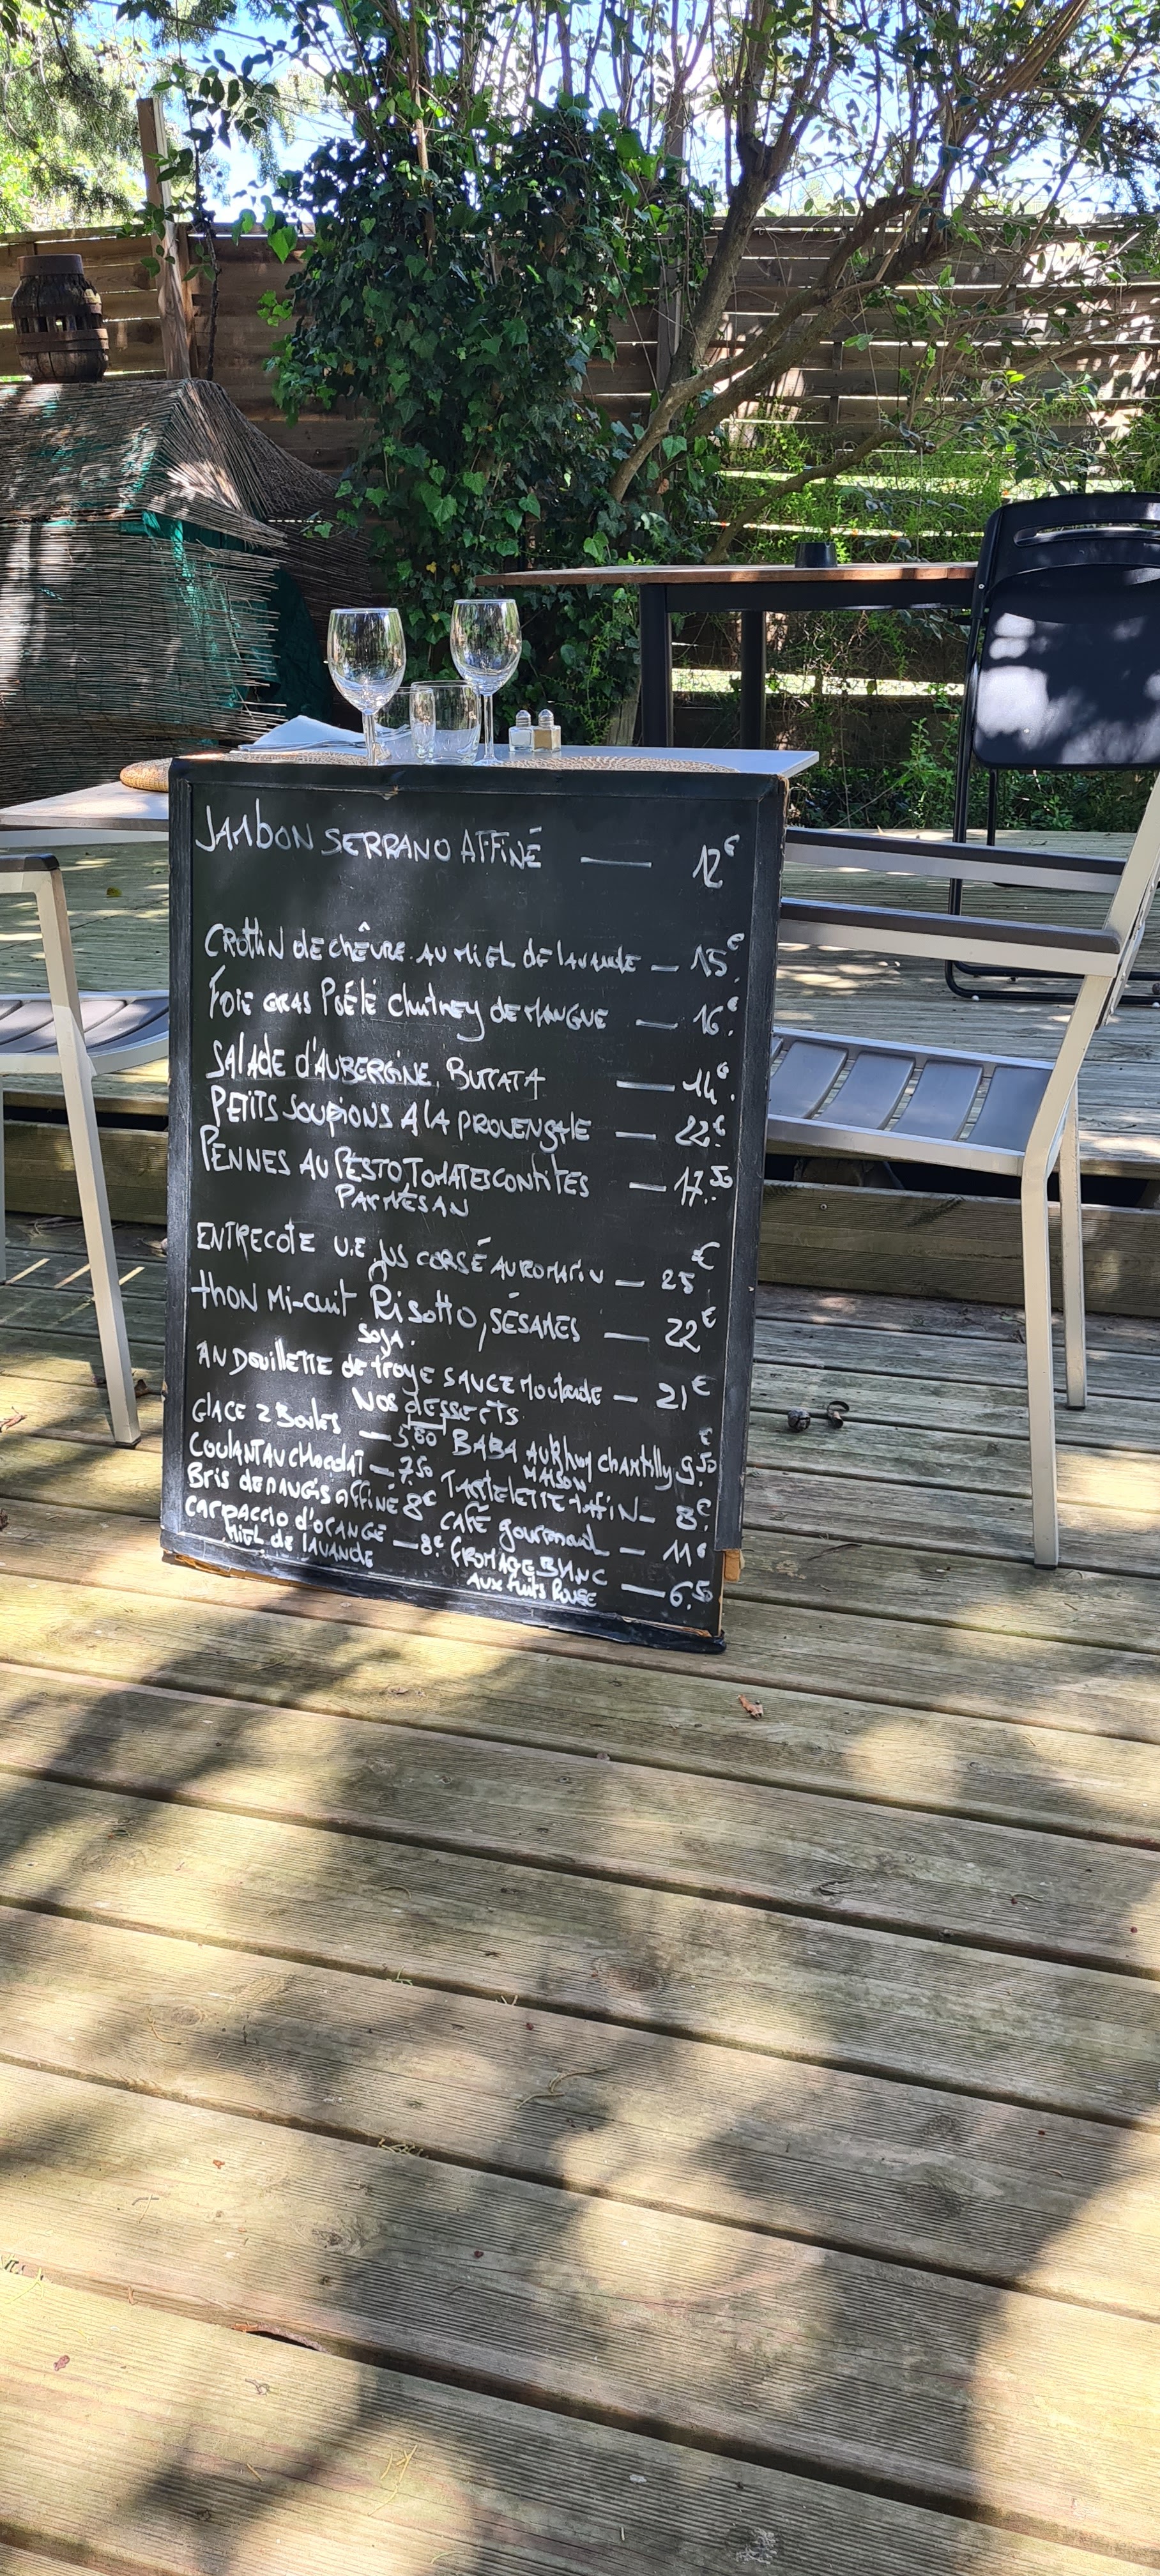 JAMBON SERRANO AFFINÉ — 12€
CROTTIN DE CHÊVRE AU MIEL DE LAVANDE — 15€
FOIE GRAS POÉLÉ CHUTNEY DE MANGUE — 16€
SALADE D'AUBERGINE, BURATA — 14€
PETITS SOUPIONS A LA PROVENÇALE — 22€
PENNES AU PESTO, TOMATES CONFITES — 17.50
PARMESAN
ENTRECOTE U.E JUS CORSÉ AU ROMARIN — 25€
THON MI-CUIT RISOTTO, SÉSAMES — 22€
SOJA.
ANDOUILLETTE DE TROYE SAUCE MOUTARDE — 21€
NOS DESSERTS
GLACE 2 BOULES — 5.60 BABA AU RHUM CHANTILLY 9.50€
MAISON
COULANT AU CHOCOLAT — 7.50 TARTELETTE TATIN — 8€
BRIS DE NANGIS AFFINÉ 8€ CAFÉ GOURMAND — 11€
CARPACCIO D'ORANGE — 8€ FROMAGE BLANC — 6.50
MIEL DE LAVANDE AUX FRUITS ROUGE